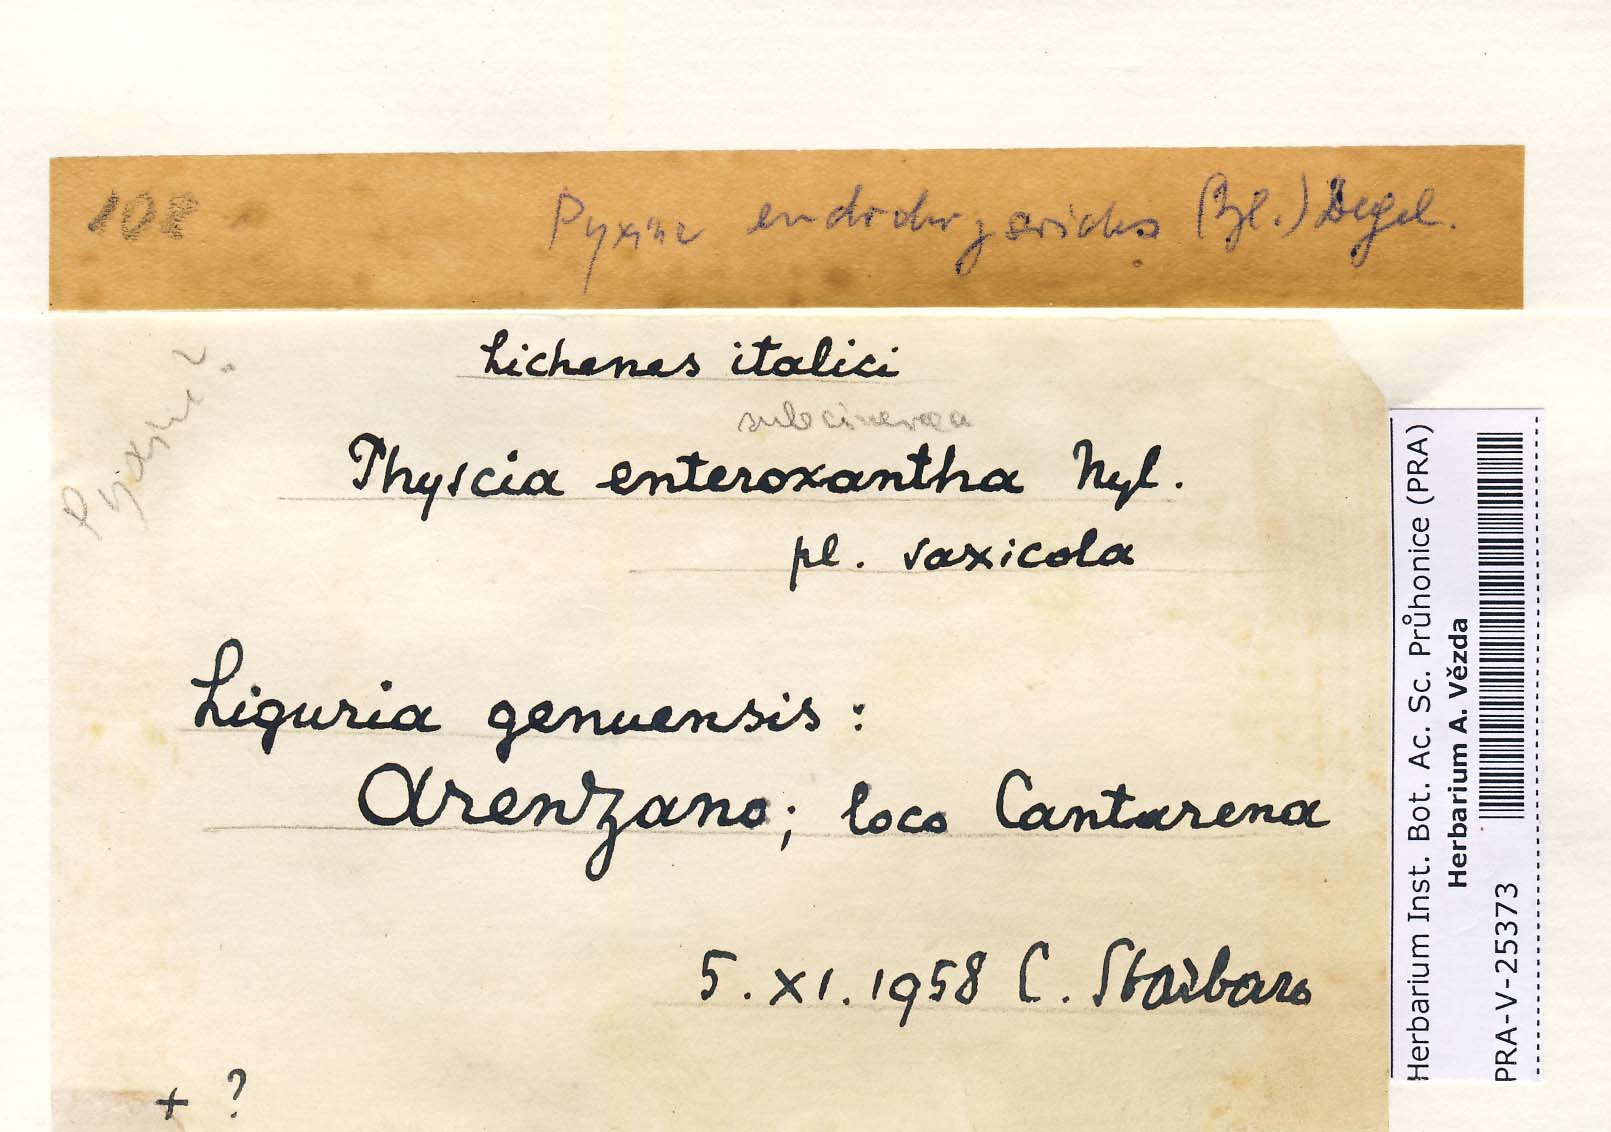 108
Pyxine endochrysoides (Nyl.) Degel.
Pyxine?
Lichenes italici
subcinerea
Physcia enteroxantha Nyl.
pl. saxicola
Liguria genuensis:
Arenzano; loco Cantarena
5. XI. 1958 C. Sbarbaro
+ ?
Herbarium Inst. Bot. Ac. Sc. Průhonice (PRA)
Herbarium A. Vězda
PRA-V-25373